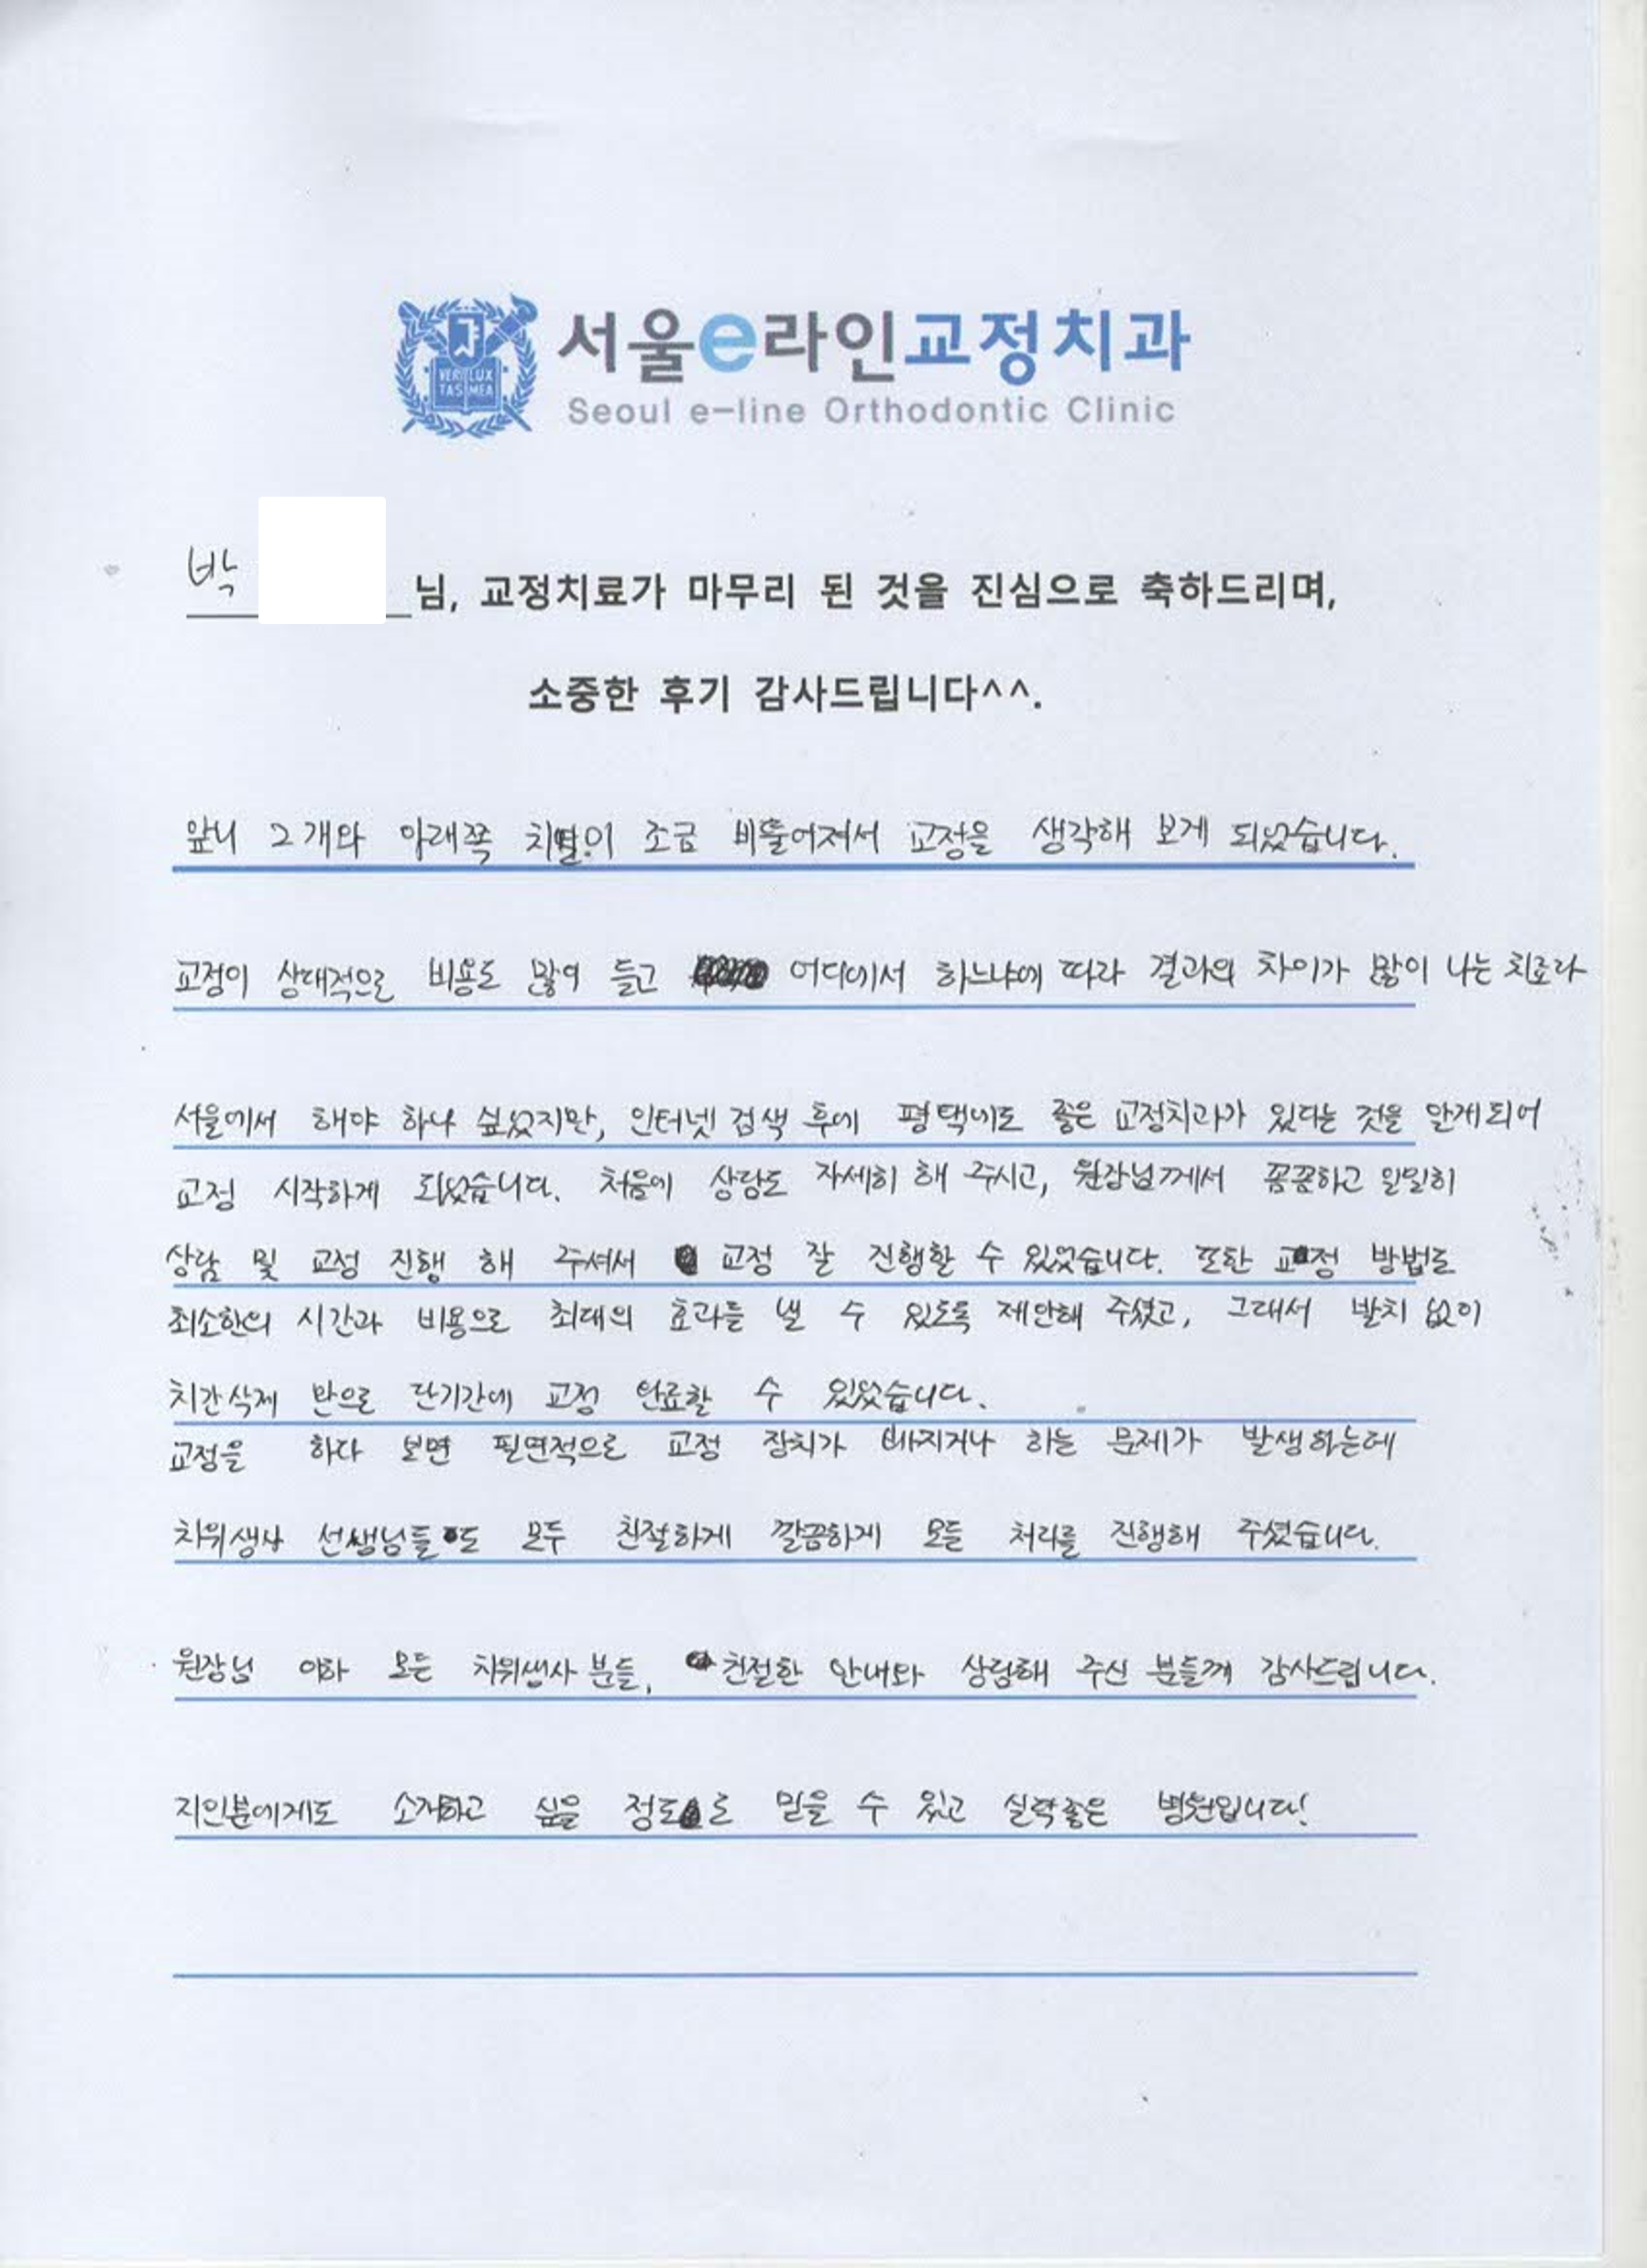 VERI LUX
TAS MEA
서울e라인교정치과
Seoul e-line Orthodontic Clinic
박 님, 교정치료가 마무리 된 것을 진심으로 축하드리며,
소중한 후기 감사드립니다^^.
앞니 2개와 아래쪽 치열이 조금 비뚤어져서 교정을 생각해 보게 되었습니다.
교정이 상대적으로 비용도 많이 들고 어디에서 하느냐에 따라 결과의 차이가 많이 나는 치료라
서울에서 해야 하나 싶었지만, 인터넷 검색 후에 평택에도 좋은 교정치과가 있다는 것을 알게되어
교정 시작하게 되었습니다. 처음에 상담도 자세히 해 주시고, 원장님께서 꼼꼼하고 면밀히
상담 및 교정 진행 해 주셔서 교정 잘 진행할 수 있었습니다. 또한 교정 방법도
최소한의 시간과 비용으로 최대의 효과를 낼 수 있도록 제안해 주셨고, 그래서 발치 없이
치간삭제 만으로 단기간에 교정 완료할 수 있었습니다.
교정을 하다 보면 필연적으로 교정 장치가 빠지거나 하는 문제가 발생하는데
치위생사 선생님들도 모두 친절하게 깔끔하게 모든 처리를 진행해 주셨습니다.
원장님 이하 모든 치위생사 분들, 친절한 안내와 상담해 주신 분들께 감사드립니다.
지인분에게도 소개하고 싶을 정도로 믿을 수 있고 실력좋은 병원입니다!